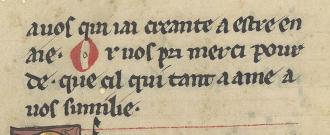 auos qui iai creante a estre en
aie· Or uos pri merci pour
de· que cil qui tant a ame a
uos sumilie·